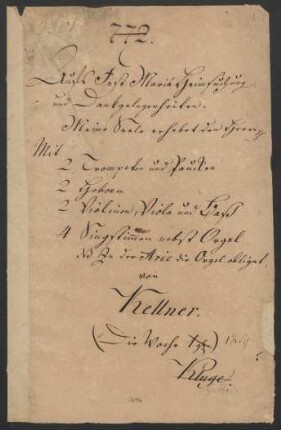 772.
Aufs Fest Mariä Heimsuchung
und Dankgelegenheiten.
Meine Seele erhebet den Herrn
Mit
2 Trompeten und Pauken
2 Hoboen
2 Violinen, Viola und Bass
4 Singstimmen nebst Orgel
NB In der Arie die Orgel obligat.
von
Kellner.
(Die Woche
Kluge.